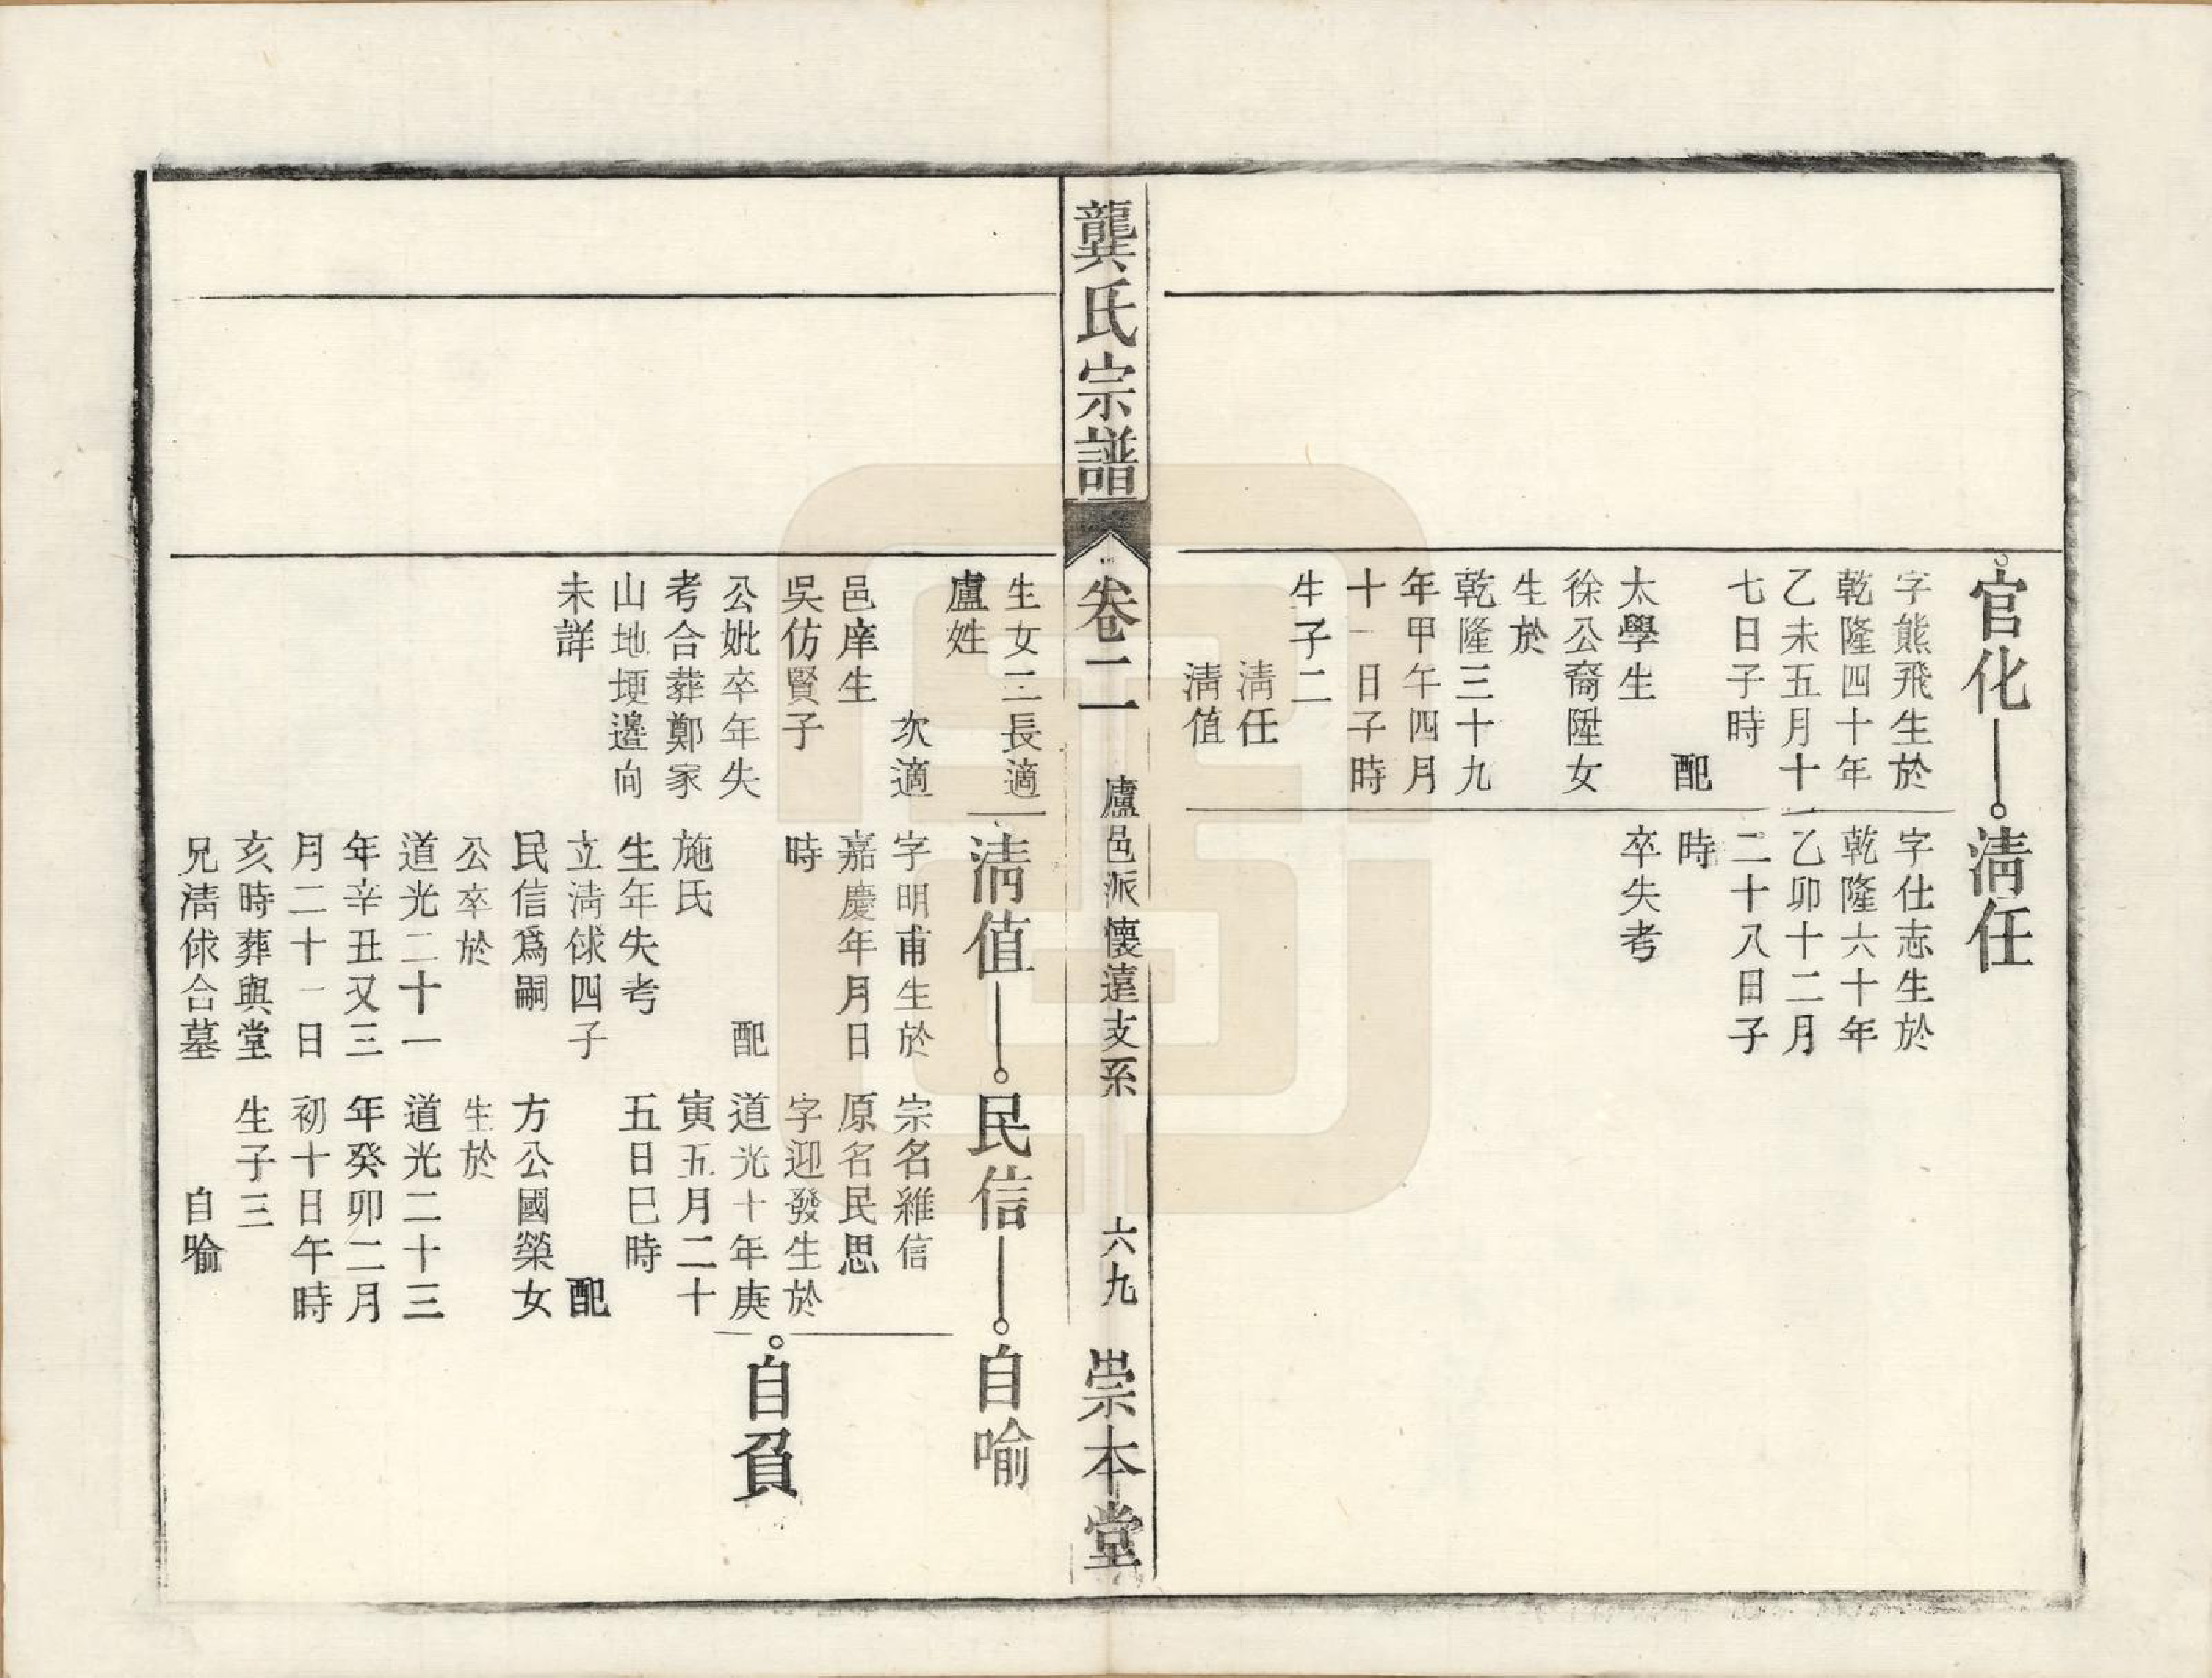 官化
字熊飛生於
乾隆四十年
乙未五月十
七日子時
配
太學生
徐公裔陞女
生於
乾隆三十九
年甲午四月
十一日子時
生子二
淸任
淸值
淸任
字仕志生於
乾隆六十年
乙卯十二月
二十八日子
時
卒失考
龔氏宗譜
卷二
廬邑派懷遠支系
六九
崇本堂
生女二長適
盧姓
次適
邑庠生
吳仿賢子
公妣卒年失
考合葬鄭家
山地埂邊向
未詳
淸值
字明甫生於
嘉慶年月日
時
配
施氏
生年失考
立淸俅四子
民信爲嗣
公卒於
道光二十一
年辛丑又三
月二十一日
亥時葬與堂
兄淸俅合墓
民信
宗名維信
原名民思
字迎發生於
道光十年庚
寅五月二十
五日巳時
配
方公國榮女
生於
道光二十三
年癸卯二月
初十日午時
生子三
自喻
自喻
自負